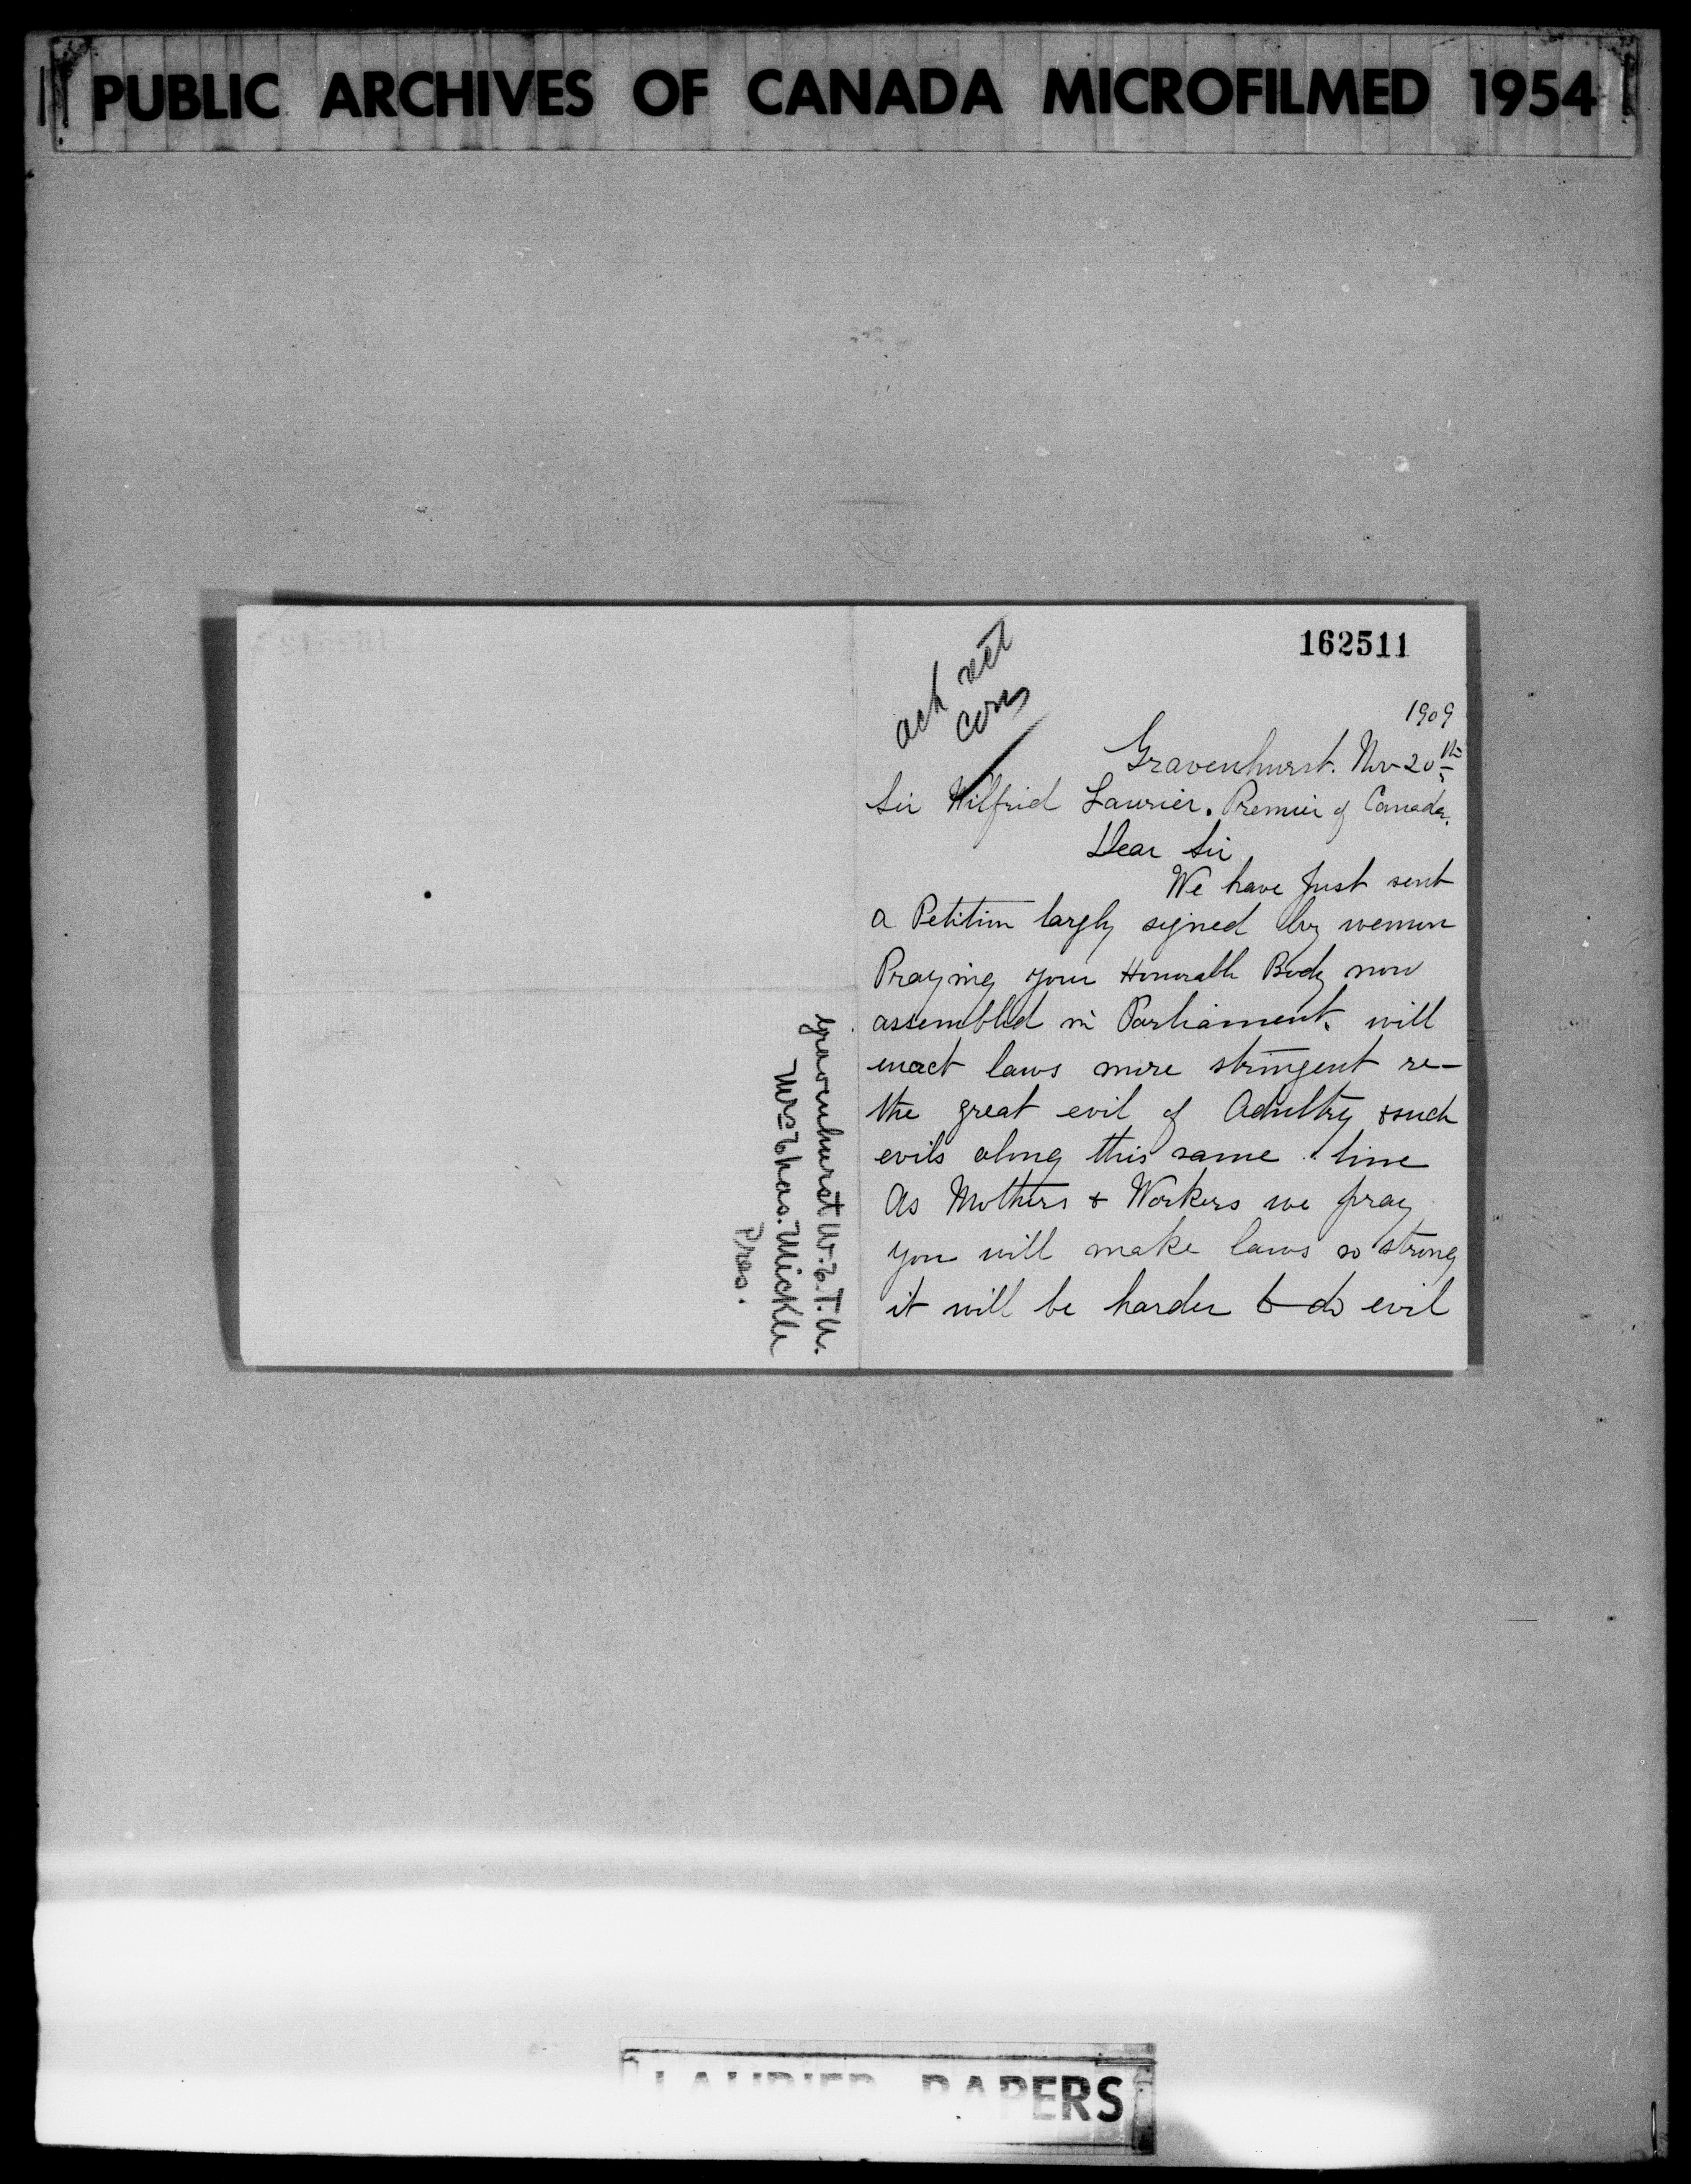 PUBLIC ARCHIVES OF CANADA MICROFILMED 1954
162511
ack
1909
Gravenhurst. Nov 20th
Sir Wilfrid Laurier. Premier of Canada.
Dear Sir
We have just sent
a Petition largly signed by women
Praying your Honorable Body now
assembled in Parliament. will
enact laws more stringent re-
the great evil of Adultry & such
evils along this same line
As Mothers & Workers we pray
you will make laws so strong
it will be harder to do evil
Gravenhurst W.C.T.U.
Mrs Chas. Mickle
Pres.
LAURIER PAPERS